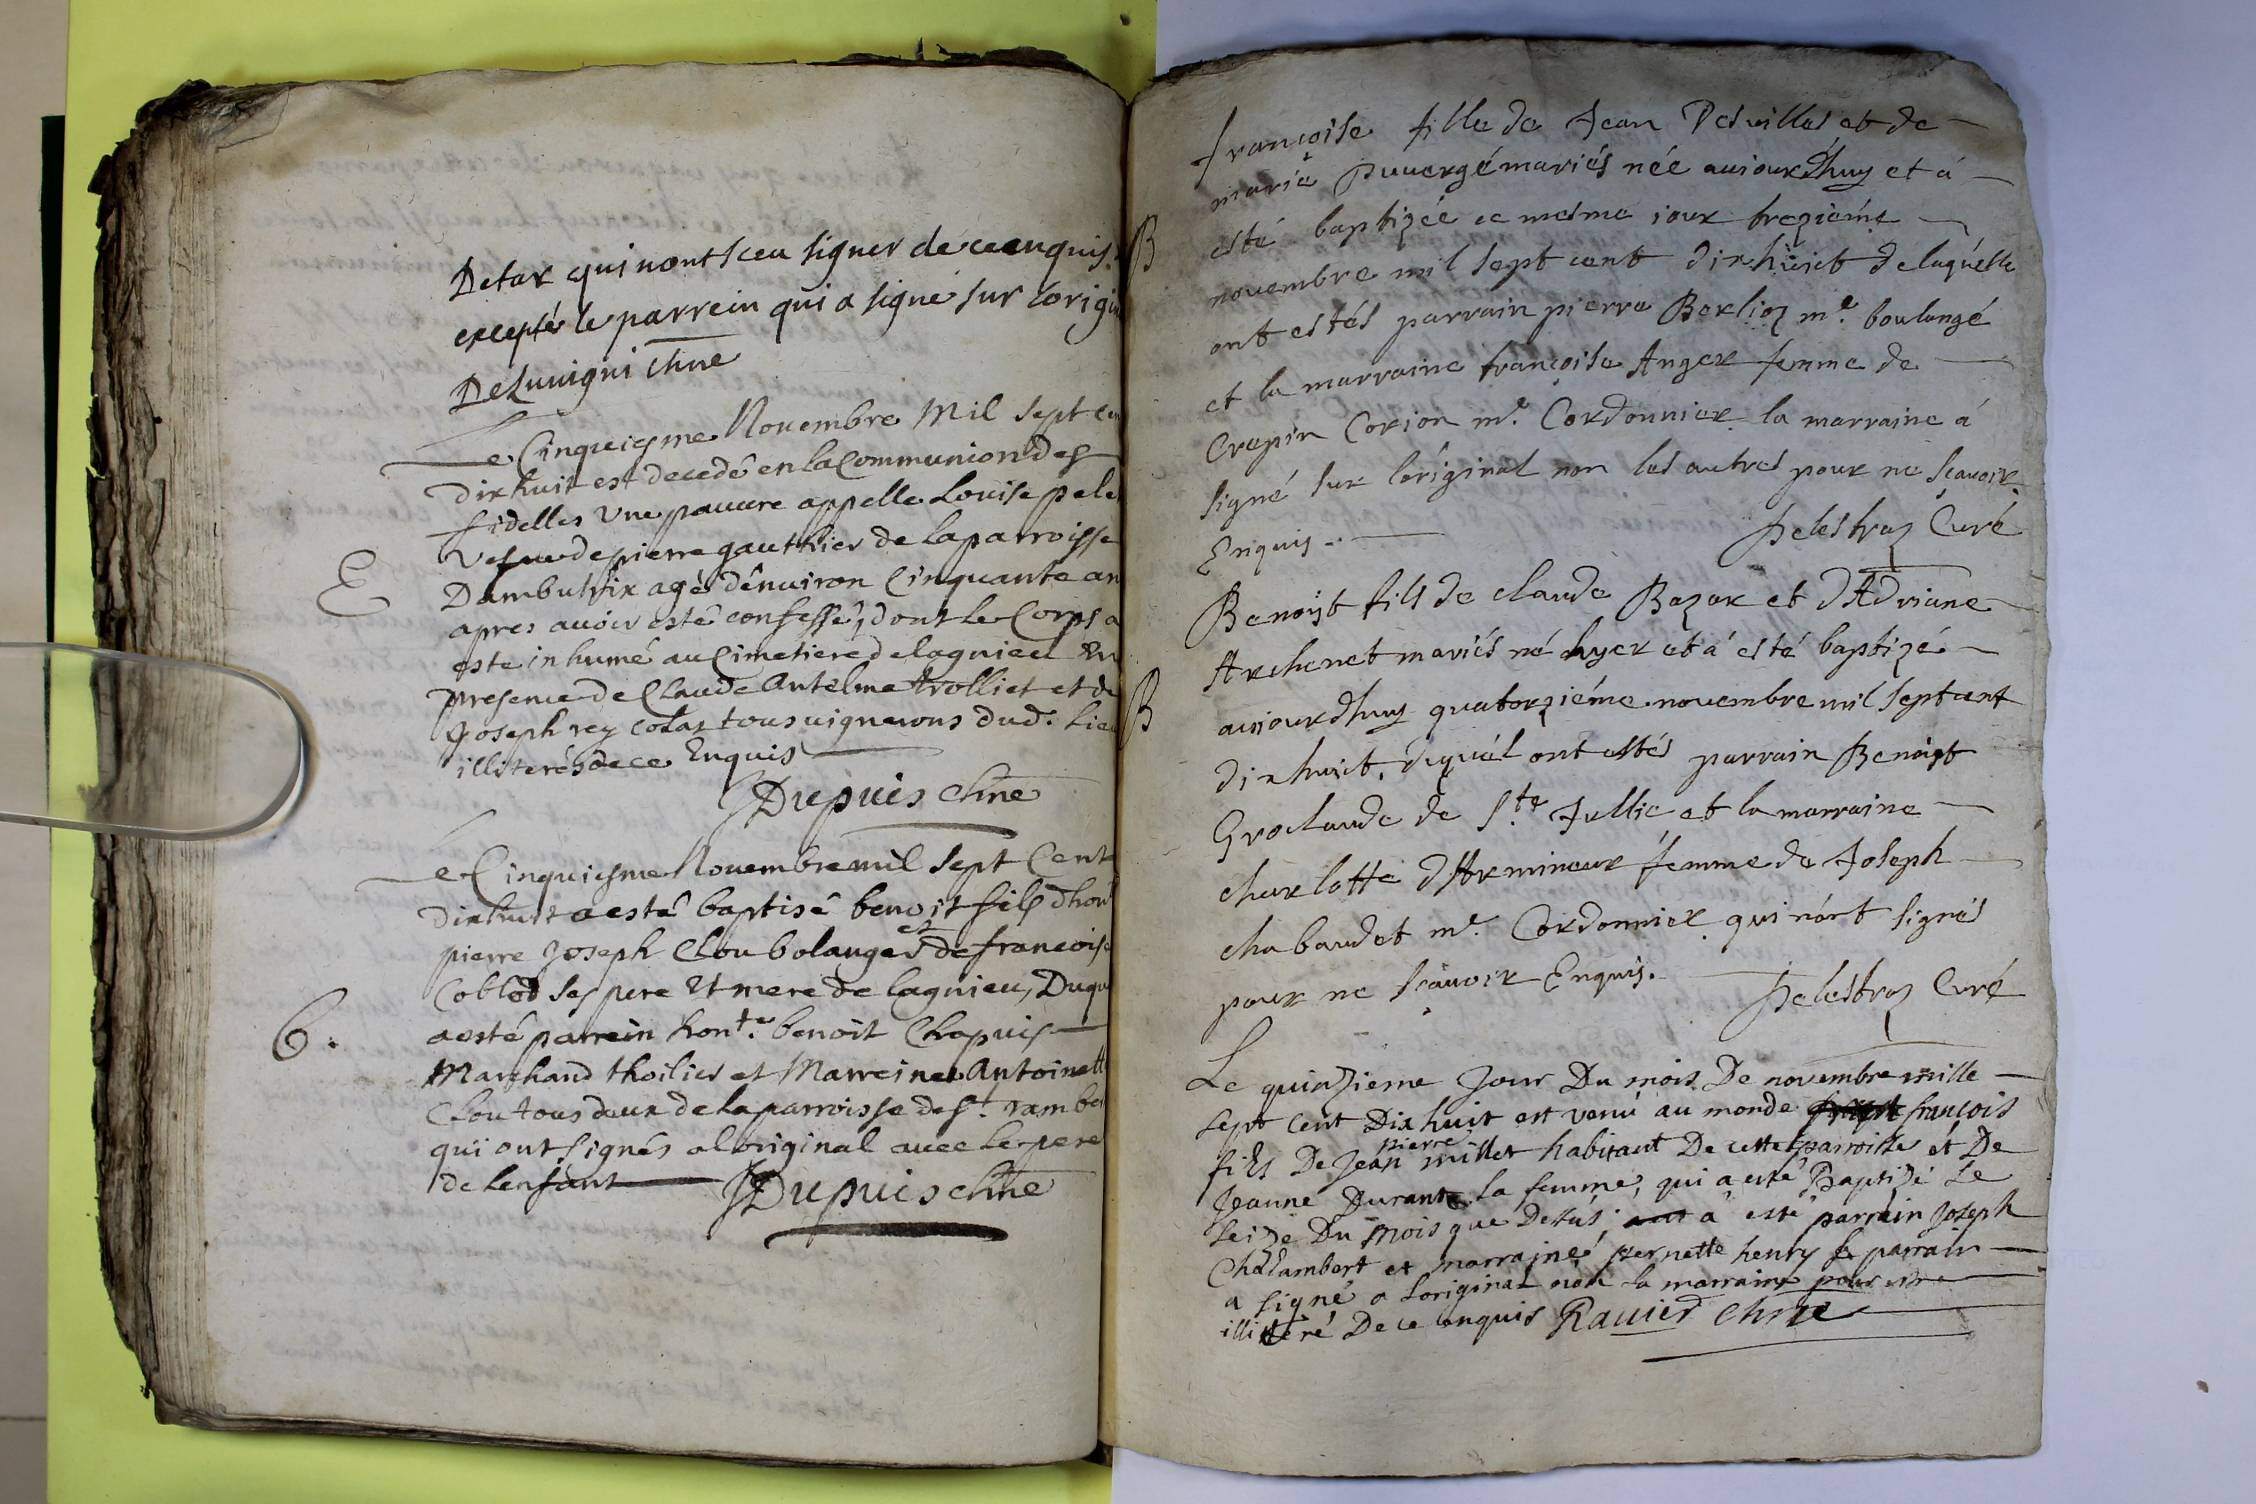 Detax qui nont sceu signer de ce enquis
exceptés le parrein qui a signé sur lorigin
DeLuuigni chne
Le Cinquiesme Nouembre Mil sept cen
dixhuit est decedé en la Communion des
fidelles Une pauure appelle Louise pele
Vefue de pierre gauthier de la parroisse
Dambutrix agé dênuiron Cinquante an
apres auoir esté confessé, dont le Corps a
este inhumé au Cimetiere de lagnieu En
E
presence de Claude Antelme trolliet et de
Joseph rey colas tous uignerons dud. Lieu
illiterés de ce Enquis
Dupuis chne
Le Cinquiesme Nouembre mil sept Cent
dixhuit a esté baptisé benoit fils dhon
pierre Joseph Clou bolanger et de francoise
Coblod ses pere Et mere de lagnieu, Duqu
a esté parrein hon.te benoit Chapuis
6.
Marchand thoilier et Marreine Antoinett
Clou tous deux de la parroisse de St. rambe
qui ont signés a loriginal auec le pere
de lenfant
Dupuis chne
françoise fille de Jean Desuillas et de
marie puuergé mariés née auiourdhuy et á
B
esté baptizée ce mesme iour trezieme
novembre mil sept cent dixhuict de laquelle
ont estés parrain pierre Berlioz me. boulangé
et la marraine françoise Anger femme de
Crepin Corion me. Cordonnier la marraine á
signé sur lóriginal non les autres pour ne sçauoir
Enquis.
Pelestraz Curé
Benoist fils de claude Bozax et dAdriane
Archenet mariés né hyer et á esté baptizé
B
auiourdhuy quatorziéme nouembre mil sept cent
dixhuict, duquél ont estés parrain Benoist
Groclaude de S.te Jullie et la marraine
charlotte dArmineur femme de Joseph
chabaudet me. Cordonnier qui nónt signés
pour ne sçauoir Enquis.
Pelestraz Curé
Le quinzieme Jour Du mois De novembre mille
sept Cent Dix huit est venú au monde françois
fils De Jean pierre millet habitant De cette parroisse et De
Jeanne Durante sa femme, qui a esté Baptizé Le
seize Du mois que Dessus, a esté parrain Joseph
Challambert et marraine pernette henry le parrain
a signé a Loriginal non la marraine pour estre
illiteré De ce enquis Rauier chne